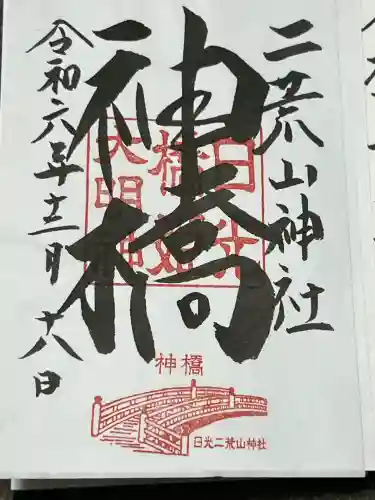 二荒山神社
神橋
令和六年十二月十八日
日光
橋姫
大明神
神橋
日光二荒山神社